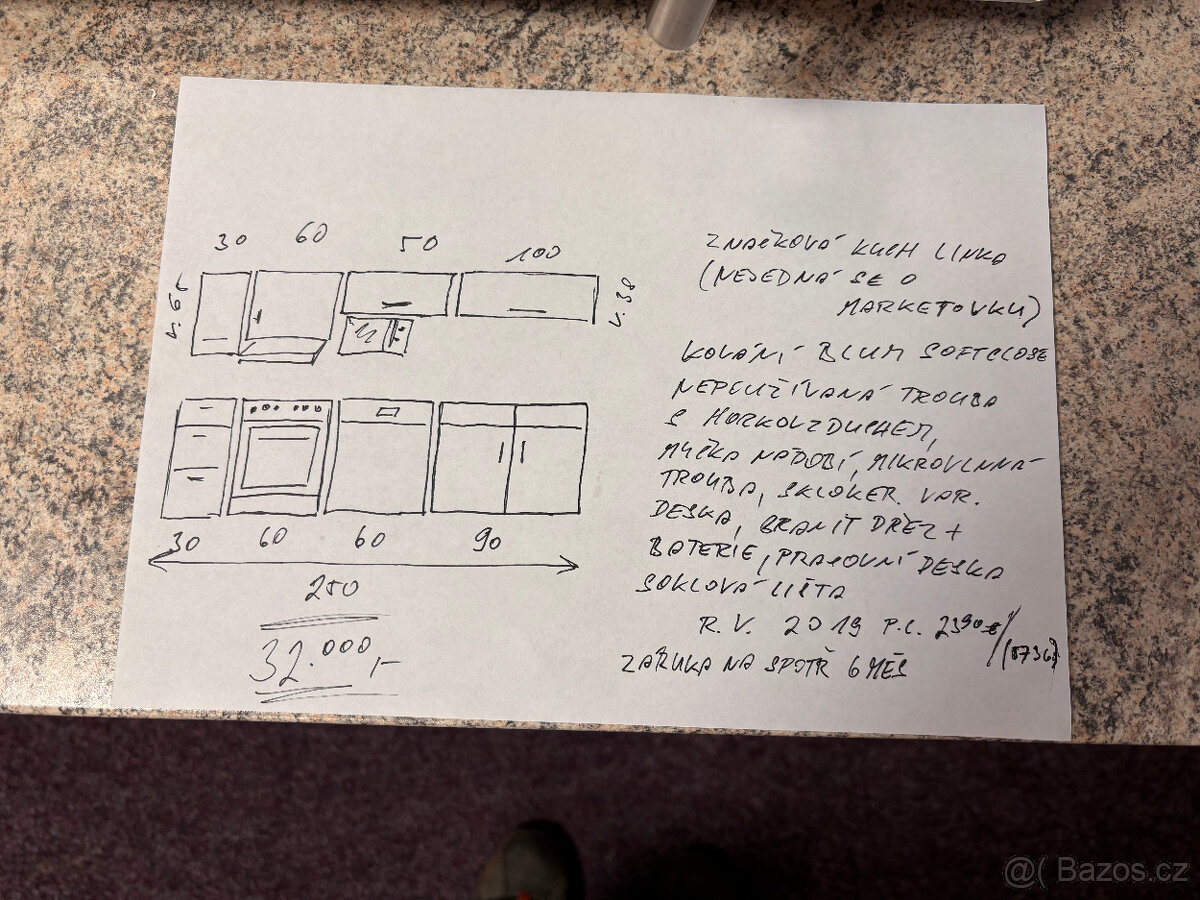 30 60 50 100
V. 38
30 60 60 90
250
32.000,-
ZNAČKOVÁ KUCH LINKA
(NEJEDNÁ SE O
MARKETOVKU)
KOVÁNÍ BLUM SOFTCLOSE
NEPOUŽÍVANÁ TROUBA
S HORKOVZDUCHEM,
MYČKA NÁDOBÍ, MIKROVLNNÁ
TROUBA, SKLOKER. VAR.
DESKA, GRANIT DŘEZ +
BATERIE, PRACOVNÍ DESKA
SOKLOVÁ LIŠTA
R.V. 2019 P.C. 2390€
ZÁRUKA NA SPOTŘ 6 MĚS
@( Bazos.cz